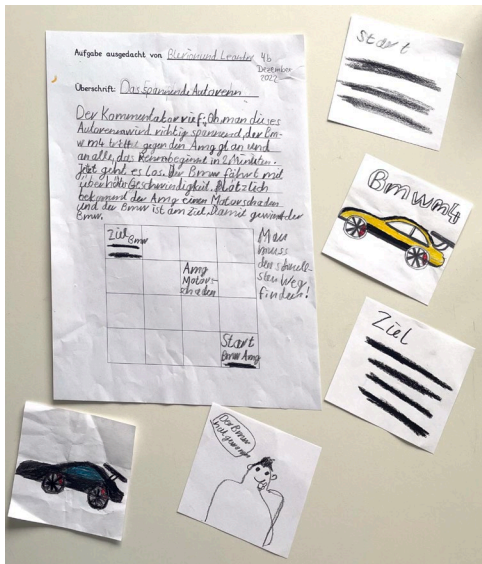 Aufgabe ausgedacht von Blerion und Leander 4b
Dezember
2022
Überschrift: Das Spannende Autorenn
Der Kommentator rief: Oh man dieses
Autorennen wird richtig spannend, der Bm-
w m4 tritt gegen den Amg gt an und
an alle, das Rennen beginnt in 2 Minuten.
Jetzt geht es los. Der Bmw fährt mit
überhöhter Geschwindigkeit. Plötzlich
bekommt der Amg einen Motorschaden
und der Bmw ist am Ziel. Damit gewinnt der
Bmw.
Ziel
Bmw
Amg
Motor-
schaden
Start
Bmw Amg
Man
muss
den schnell-
sten Weg
finden!
Start
Bmw m4
Ziel
Der Bmw
hat gewonnen